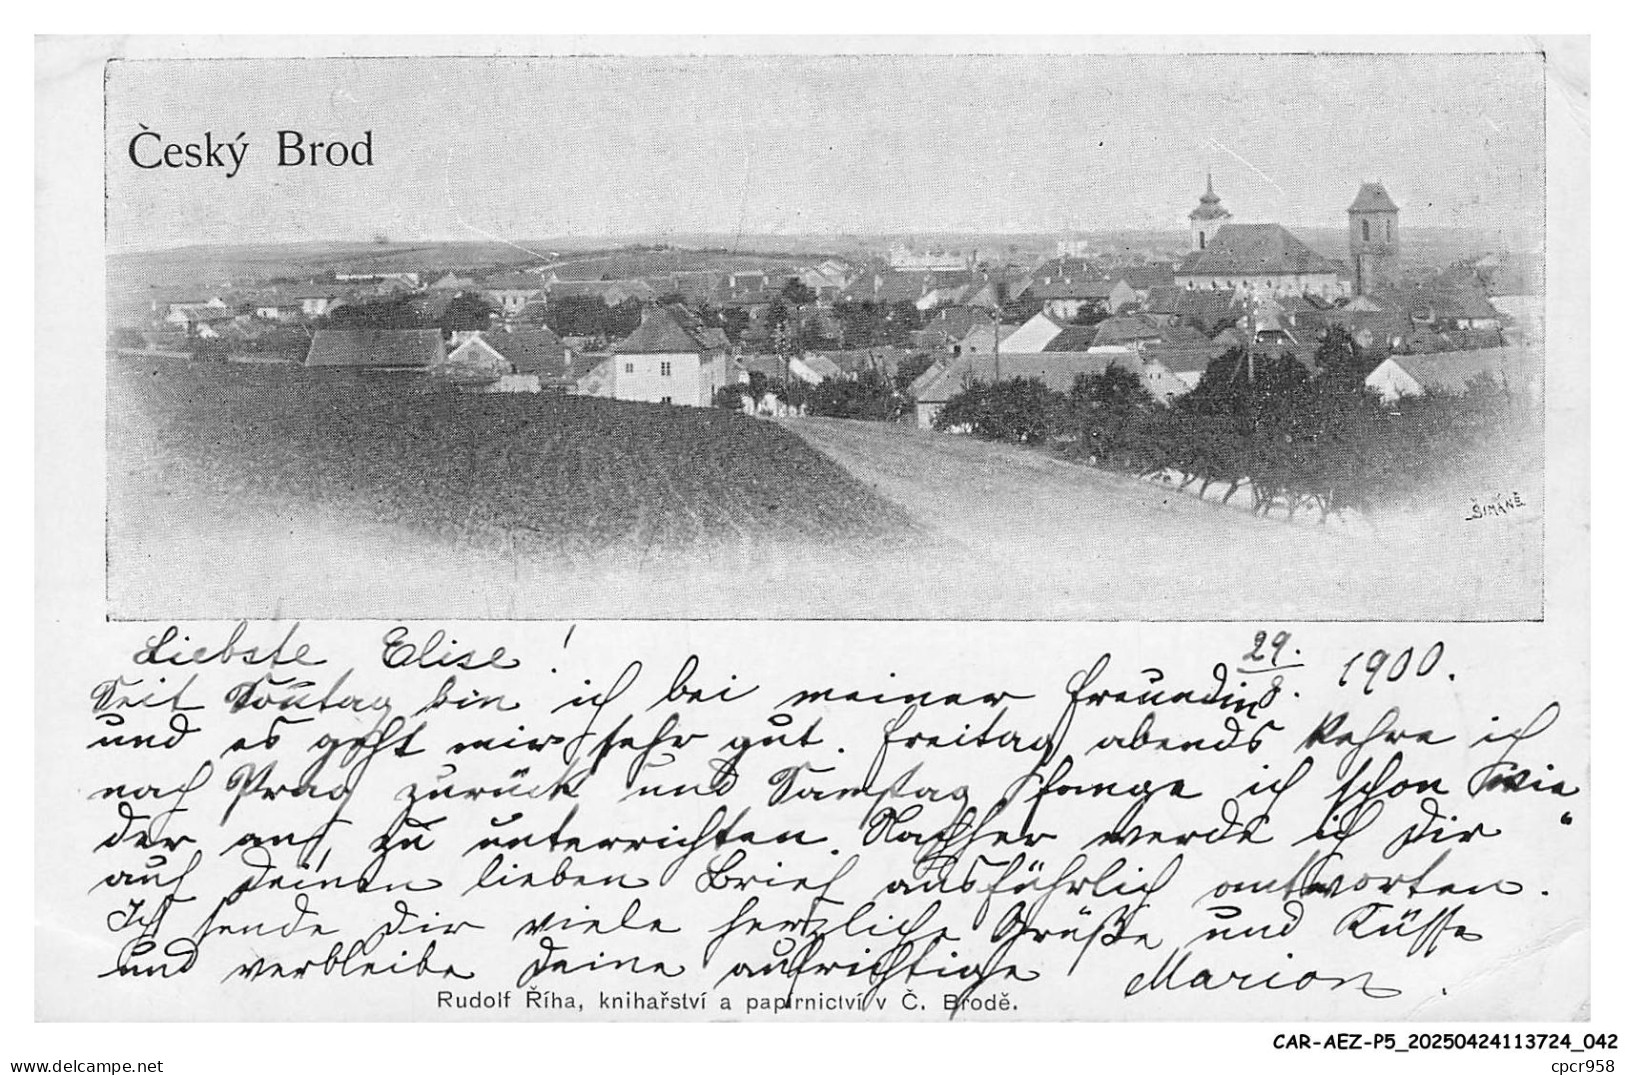 Český Brod
ŠIMÁNĚ
Liebste Elise!
29./8. 1900.
Seit Sontag bin ich bei meiner Freundin
und es geht mir sehr gut. Freitag abends kehre ich
nach Prag zurück und Samstag fange ich schon wie
der an, zu unterrichten. Nachher werde ich Dir "
auf Deinen lieben Brief ausführlich antworten.
Ich sende Dir viele herzliche Grüße und Küsse
und verbleibe Deine aufrichtige Marion.
Rudolf Říha, knihařství a papírnictví v Č. Brodě.
CAR-AEZ-P5_20250424113724_042
www.delcampe.net
cpcr958